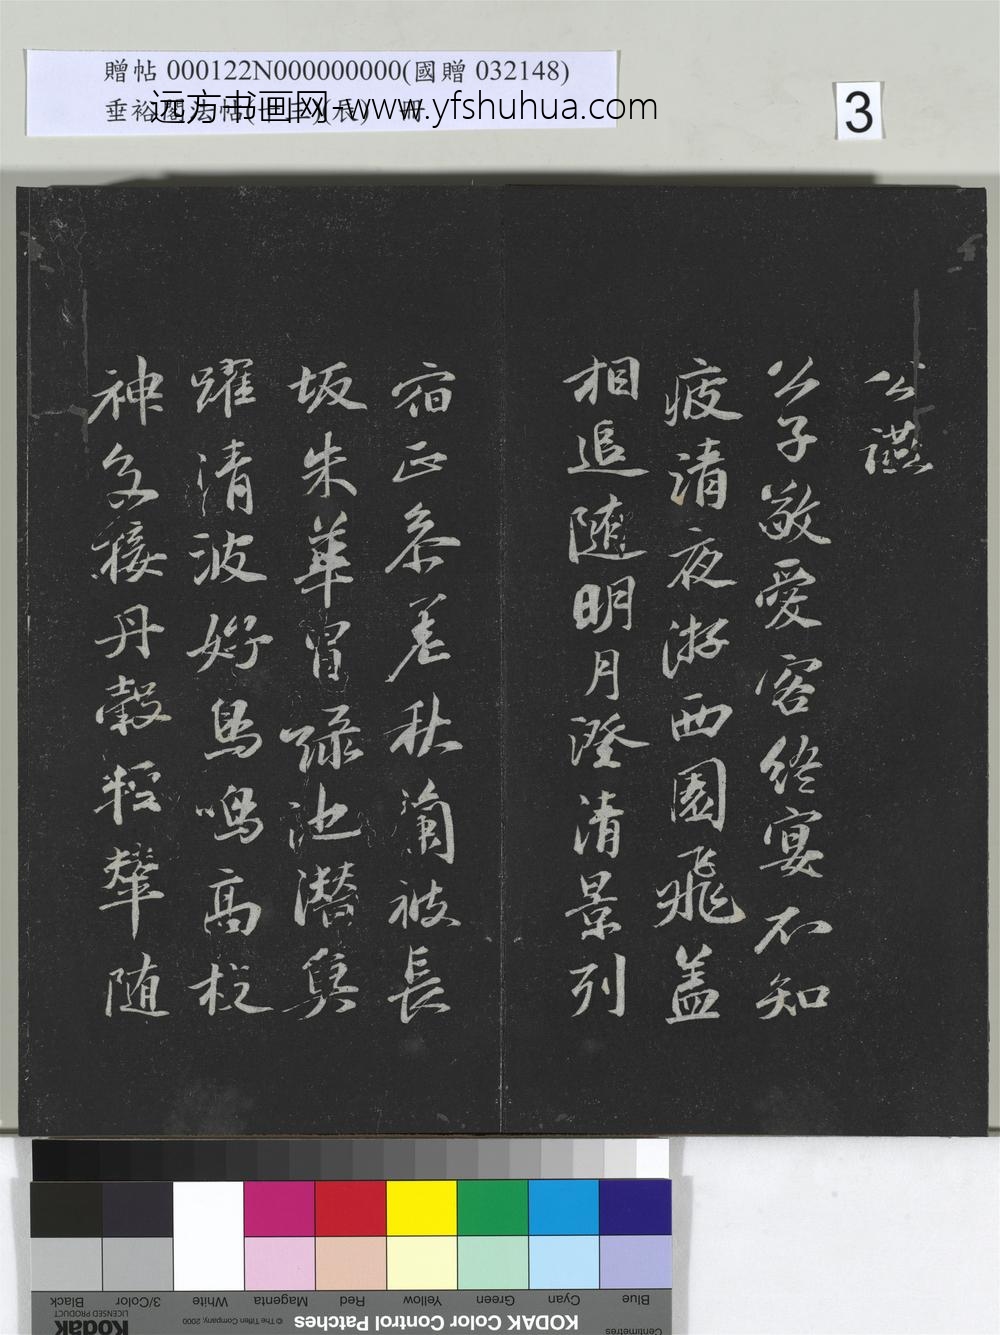 贈帖 000122N000000000(國贈 032148)
垂裕閣法帖
冊
远方书画网-www.yfshuhua.com
3
公讌
公子敬愛客終宴不知
疲清夜游西園飛盖
相追隨明月澄清景列
宿正參差秋蘭被長
坂朱華冒綠池潛奐
躍清波好鳥鳴高枝
神
接丹轂輕輦随
Blue
Cyan
Green
Yellow
Red
Magenta
White
3/Color
Black
Centimetres
KODAK Color Control Patches
© The Tiffen Company, 2000
Kodak
LICENSED PRODUCT